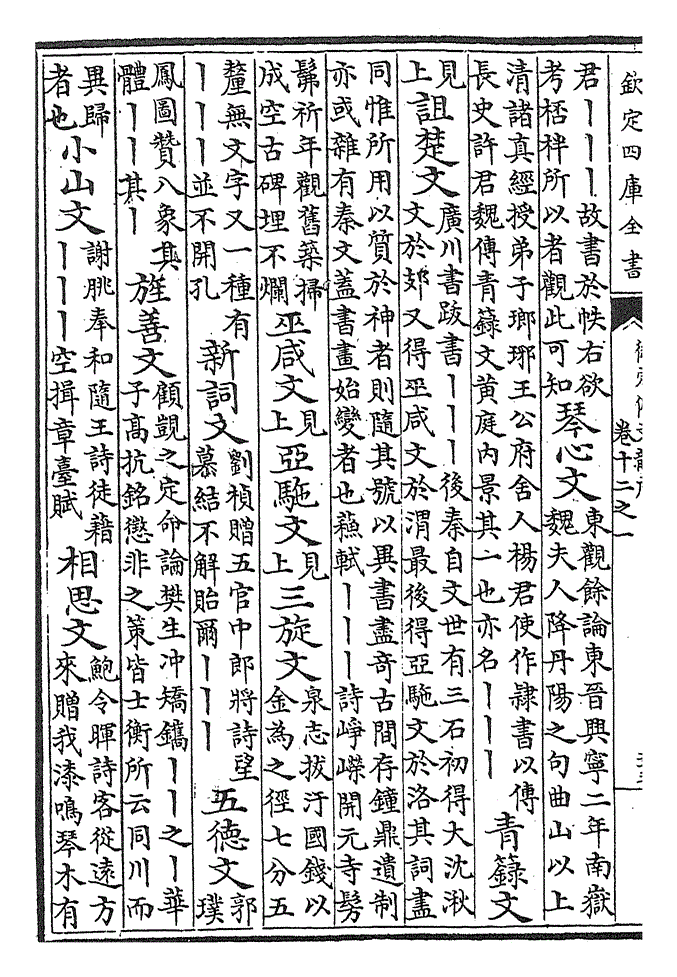 欽定四庫全書
卷十二之一
君丨丨丨故書於帙右欲
考栝柈所以者觀此可知
琴心文
東觀餘論東晉興寧二年南嶽
魏夫人降丹陽之句曲山以上
清諸真經授弟子瑯琊王公府舍人楊君使作隸書以傳
長史許君魏傳青籙文黃庭內景其一也亦名丨丨丨
青籙文
見
上
詛楚文
廣川書跋書丨丨丨後秦自文世有三石初得大沈湫
文於郊又得巫咸文於渭最後得亞駞文於洛其詞盡
同惟所用以質於神者則隨其號以異書盡竒古間存鐘鼎遺制
亦或雜有秦文蓋書畫始變者也蘇軾丨丨丨詩崢嶸開元寺髣
髴祈年觀舊築掃
成空古碑埋不爛
巫咸文
見
上
亞駞文
見
上
三旋文
泉志拔汗國錢以
金為之徑七分五
釐無文字又一種有
丨丨丨並不開孔
新詞文
劉楨贈五官中郎將詩望
慕結不解貽爾丨丨丨
五德文
郭
璞
鳳圖贊八象其
體丨丨其丨
旌善文
顧覬之定命論樊生冲矯鑴丨丨之丨華
子髙抗銘懲非之策皆士衡所云同川而
異歸
者也
小山文
謝朓奉和隨王詩徒藉
丨丨丨空揖章臺賦
相思文
鮑令暉詩客從遠方
來贈我漆鳴琴木有